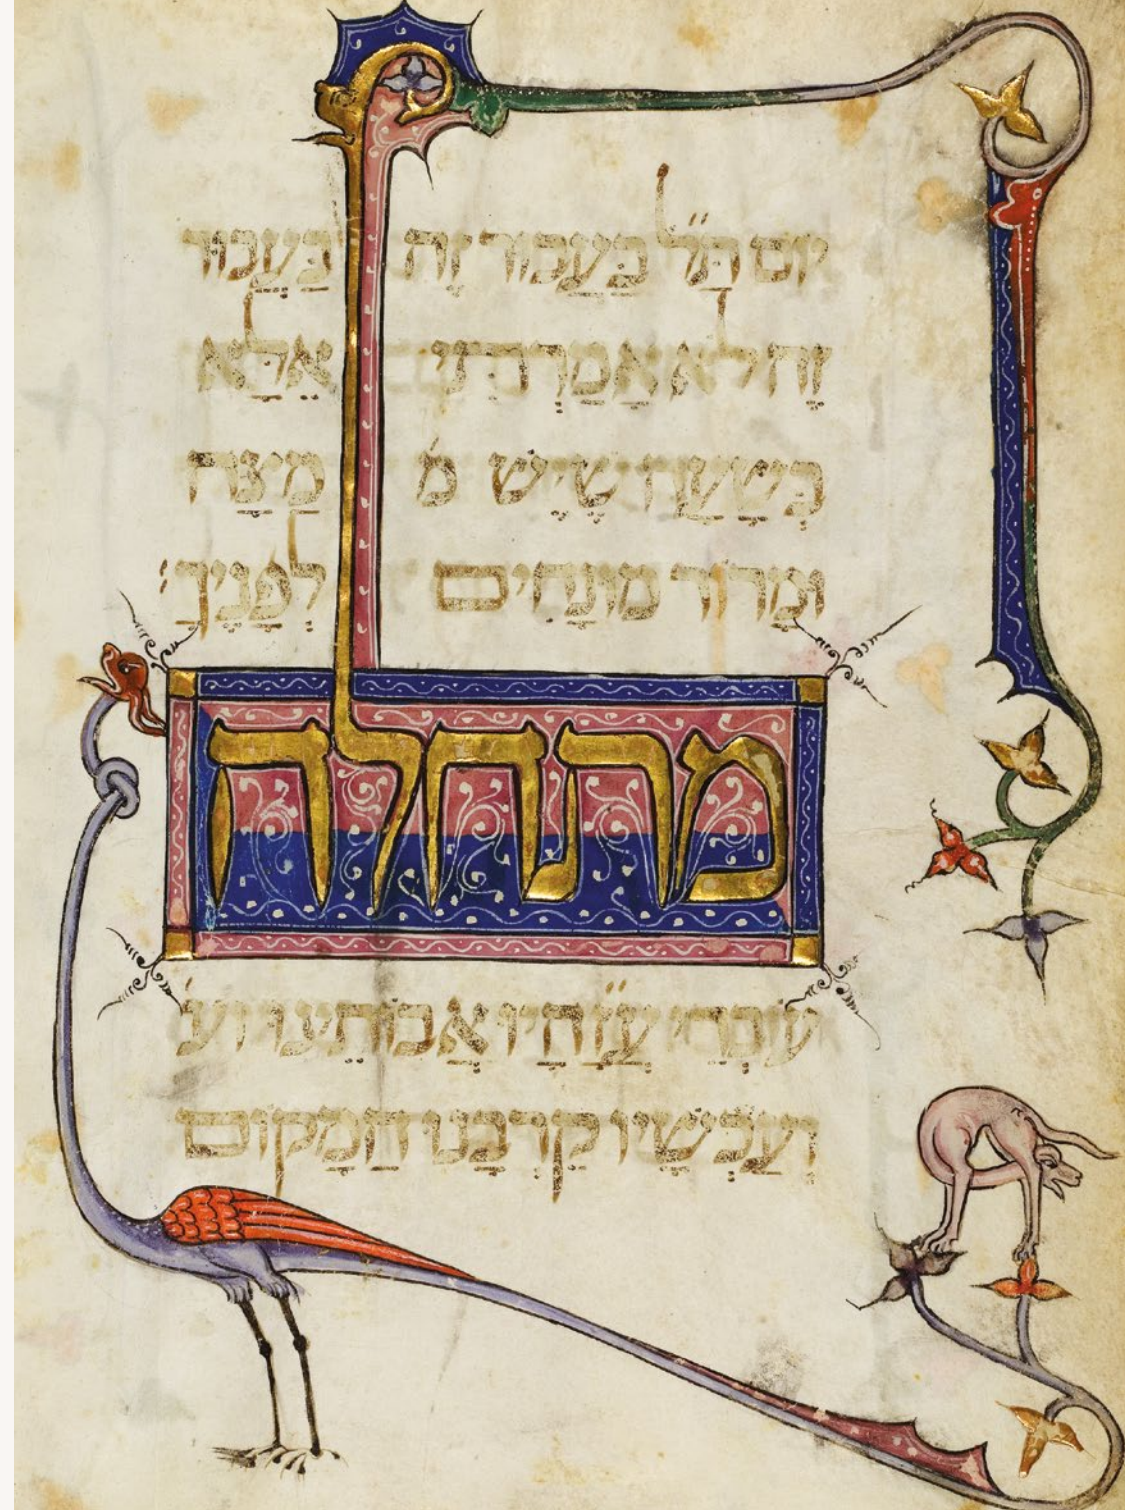 יוֹם תַּ״ל בַּעֲבוּר זֶה בַּעֲבוּר
זֶה לא אָמַרְתִּי אֶלָּא
בְּשָׁעָה שֶׁיֵּשׁ מ׳ מַצָּה
וּמָרוֹר מוּנָּחִים לְפָנֶיךָ׳
מתחלה
עוֹבְדֵי עֲ״זָ הָיוּ אֲבוֹתֵינוּ וע׳
וְעַכְשָׁיו קֵרְבָנוּ הַמָּקוֹם